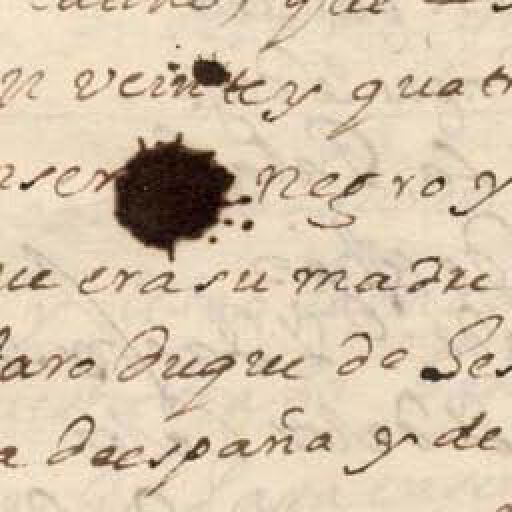 que
n veinte y quat
nser negro y
ue era su madre
taro duque de Ses
a de españa y de